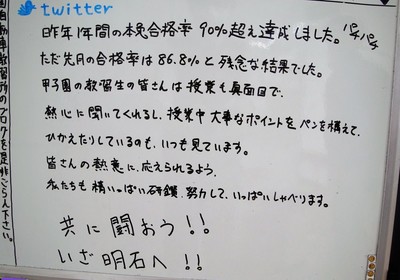 twitter
昨年1年間の本免合格率 90%超え達成しました。パチパチ
ただ先月の合格率は86.8%と残念な結果でした。
甲子園の教習生の皆さんは授業も真面目で、
熱心に聞いてくれるし、授業中大事なポイントをペンを構えて、
ひかえたりしているのも、いつも見ています。
皆さんの熱意に、応えられるよう、
私たちも精いっぱい研鑽、努力して、いっぱいしゃべります。
共に闘おう!!
いざ明石へ!!
園自動車教習所のブログを是非ごらん下さい。